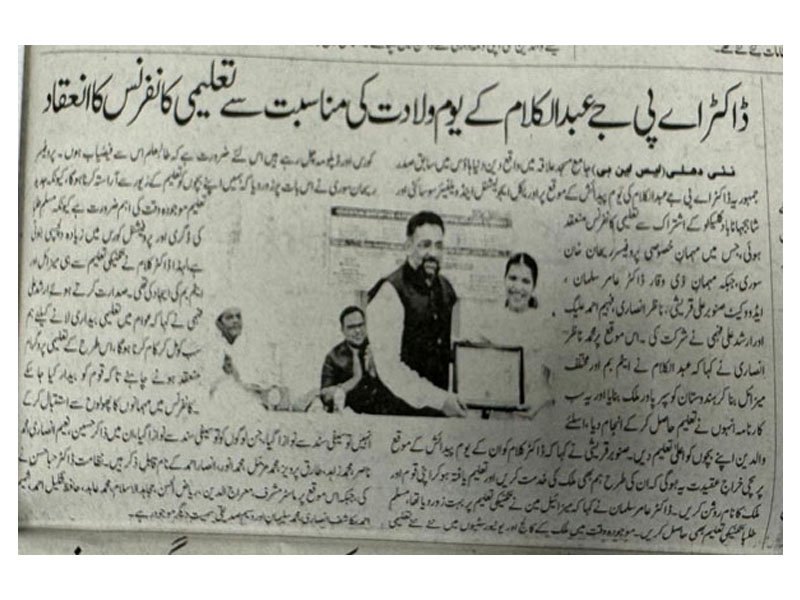 ڈاکٹر اے پی جے عبدالکلام کے یوم ولادت کی مناسبت سے تعلیمی کانفرنس کا انعقاد
نئی دھلی (ایس این بی) جامع مسجد علاقہ میں واقع دین دنیا ہاؤس میں سابق صدر
جمہوریہ ڈاکٹر اے پی جے عبدالکلام کی یوم پیدائش کے موقع پر اور بیکل ایجوکیشنل اینڈ ویلفیئر سوسائٹی اور
شاہجہاناباد کے اشتراک سے تعلیمی کانفرنس منعقد
ہوئی، جس میں مہمان خصوصی پروفیسر ریحان خان
سوری، جبکہ مہمان ذی وقار ڈاکٹر عامر سلمان،
ایڈووکیٹ صنوبر علی قریشی، ناظر انصاری، فہیم احمد ملیک
اور ارشد علی فہمی نے شرکت کی۔ اس موقع پر محمد ناظر
انصاری نے کہا کہ عبدالکلام نے ایٹم بم اور مختلف
میزائل بنا کر ہندوستان کو سپر پاور ملک بنایا اور یہ سب
کارنامہ انہوں نے تعلیم حاصل کر کے انجام دیا، اسلئے
والدین اپنے بچوں کو اعلیٰ تعلیم دیں۔ صنوبر قریشی نے کہا کہ ڈاکٹر کلام کو ان کے یوم پیدائش کے موقع
پر سچی خراج عقیدت یہ ہوگی کہ ان کی طرح ہم بھی ملک کی خدمت کریں اور تعلیم یافتہ ہو کر اپنی قوم اور
ملک کا نام روشن کریں۔ ڈاکٹر عامر سلمان نے کہا کہ میزائل مین نے تکنیکی تعلیم پر بہت زور دیا تھا، مسلم
طلبا تکنیکی تعلیم بھی حاصل کریں۔ موجودہ وقت میں ملک کے کالج اور یونیورسٹیوں میں نئے نئے تعلیمی
کورس اور ڈپلومہ چل رہے ہیں اس لئے ضرورت ہے کہ طالبعلم اس سے فیضیاب ہوں۔ پروفیسر
ریحان سوری نے اس بات پر زور دیا کہ ہمیں اپنے بچوں کو تعلیم کے زیور سے آراستہ کرنا ہوگا کیونکہ جدید
تعلیم موجودہ وقت کی اہم ضرورت ہے کیونکہ مسلم طلبا
کی ڈگری اور پروفیشنل کورس میں زیادہ دلچسپی ہوتی
ہے، لہٰذا ڈاکٹر کلام نے تکنیکی تعلیم سے ہی میزائل اور
ایٹم بم کی ایجاد کی تھی۔ صدارت کرتے ہوئے ارشد علی
فہمی نے کہا کہ عوام میں تعلیمی بیداری لانے کیلئے ہم
سب کو مل کر کام کرنا ہوگا، اس طرح کے تعلیمی پروگرام
منعقد ہونے چاہئے تاکہ قوم کو بیدار کیا جا سکے
۔ کانفرنس میں مہمانوں کا پھولوں سے استقبال کر کے
انہیں توصیفی سند سے نوازا گیا، جن لوگوں کو توصیفی سند سے نوازا گیا، ان میں ڈاکٹر حسین، نعیم انصاری، محمد
ناصر، محمد زاہد، طارق پرویز، محمد مزمل، محمد انور، انصار احمد کے نام قابل ذکر ہیں۔ نظامت ڈاکٹر حبا حسن نے
کی جبکہ اس موقع پر ماسٹر مشرف، معراج الدین، ریاض الحسن، مجاہد الاسلام، محمد عابد، حافظ شکیل احمد، شمیم
احمد، کاشف انصاری، محمد سلیمان اور وسیم صدیقی سمیت دیگر موجود رہے۔